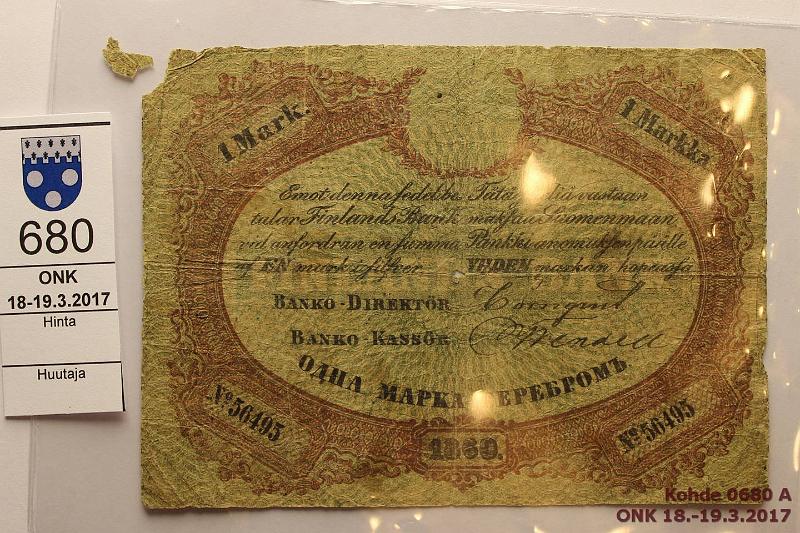 680
ONK
18-19.3.2017
Hinta
Huutaja
1 Mark.
1 Markka
Emot denna sedel be- Tätä vastaan
talar Finlands Bank maksaa Suomenmaan
vid anfordran en summa Pankki anomuksen päälle
af EN mark i silfver YHDEN markan hopeassa
BANKO-DIREKTÖR
BANKO-KASSÖR
ОДНА МАРКА СЕРЕБРОМЪ
No. 56495
No. 56495
1860.
Kohde 0680 A
ONK 18.-19.3.2017